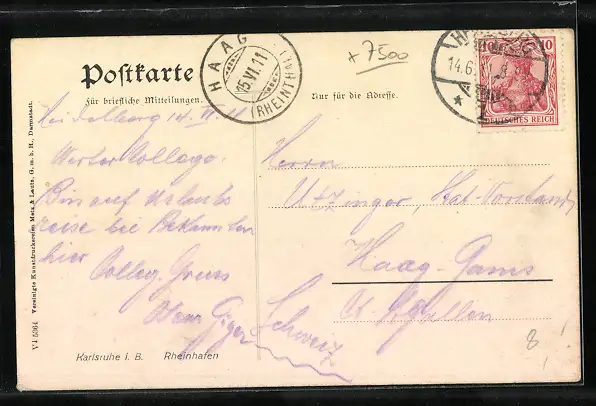 Postkarte
für briefliche Mitteilungen.
Nur für die Adresse.
HAAG
15 VI.11
(RHEINTHAL)
+ 7500
14.6.
10
DEUTSCHES REICH
Heidelberg 14 VI 11
Werter Kollege.
Bin auf Urlaubs
reise bei Bekannten
hier
Colleg. Gruss
Giger
Herrn
Utzinger, Stat-Vorstand
Haag-Gams
Kt. St. Gallen
Schweiz
8
Karlsruhe i. B. Rheinhafen
Vereinigte Kunstdruckereien Metz & Lautz, G. m. b. H., Darmstadt.